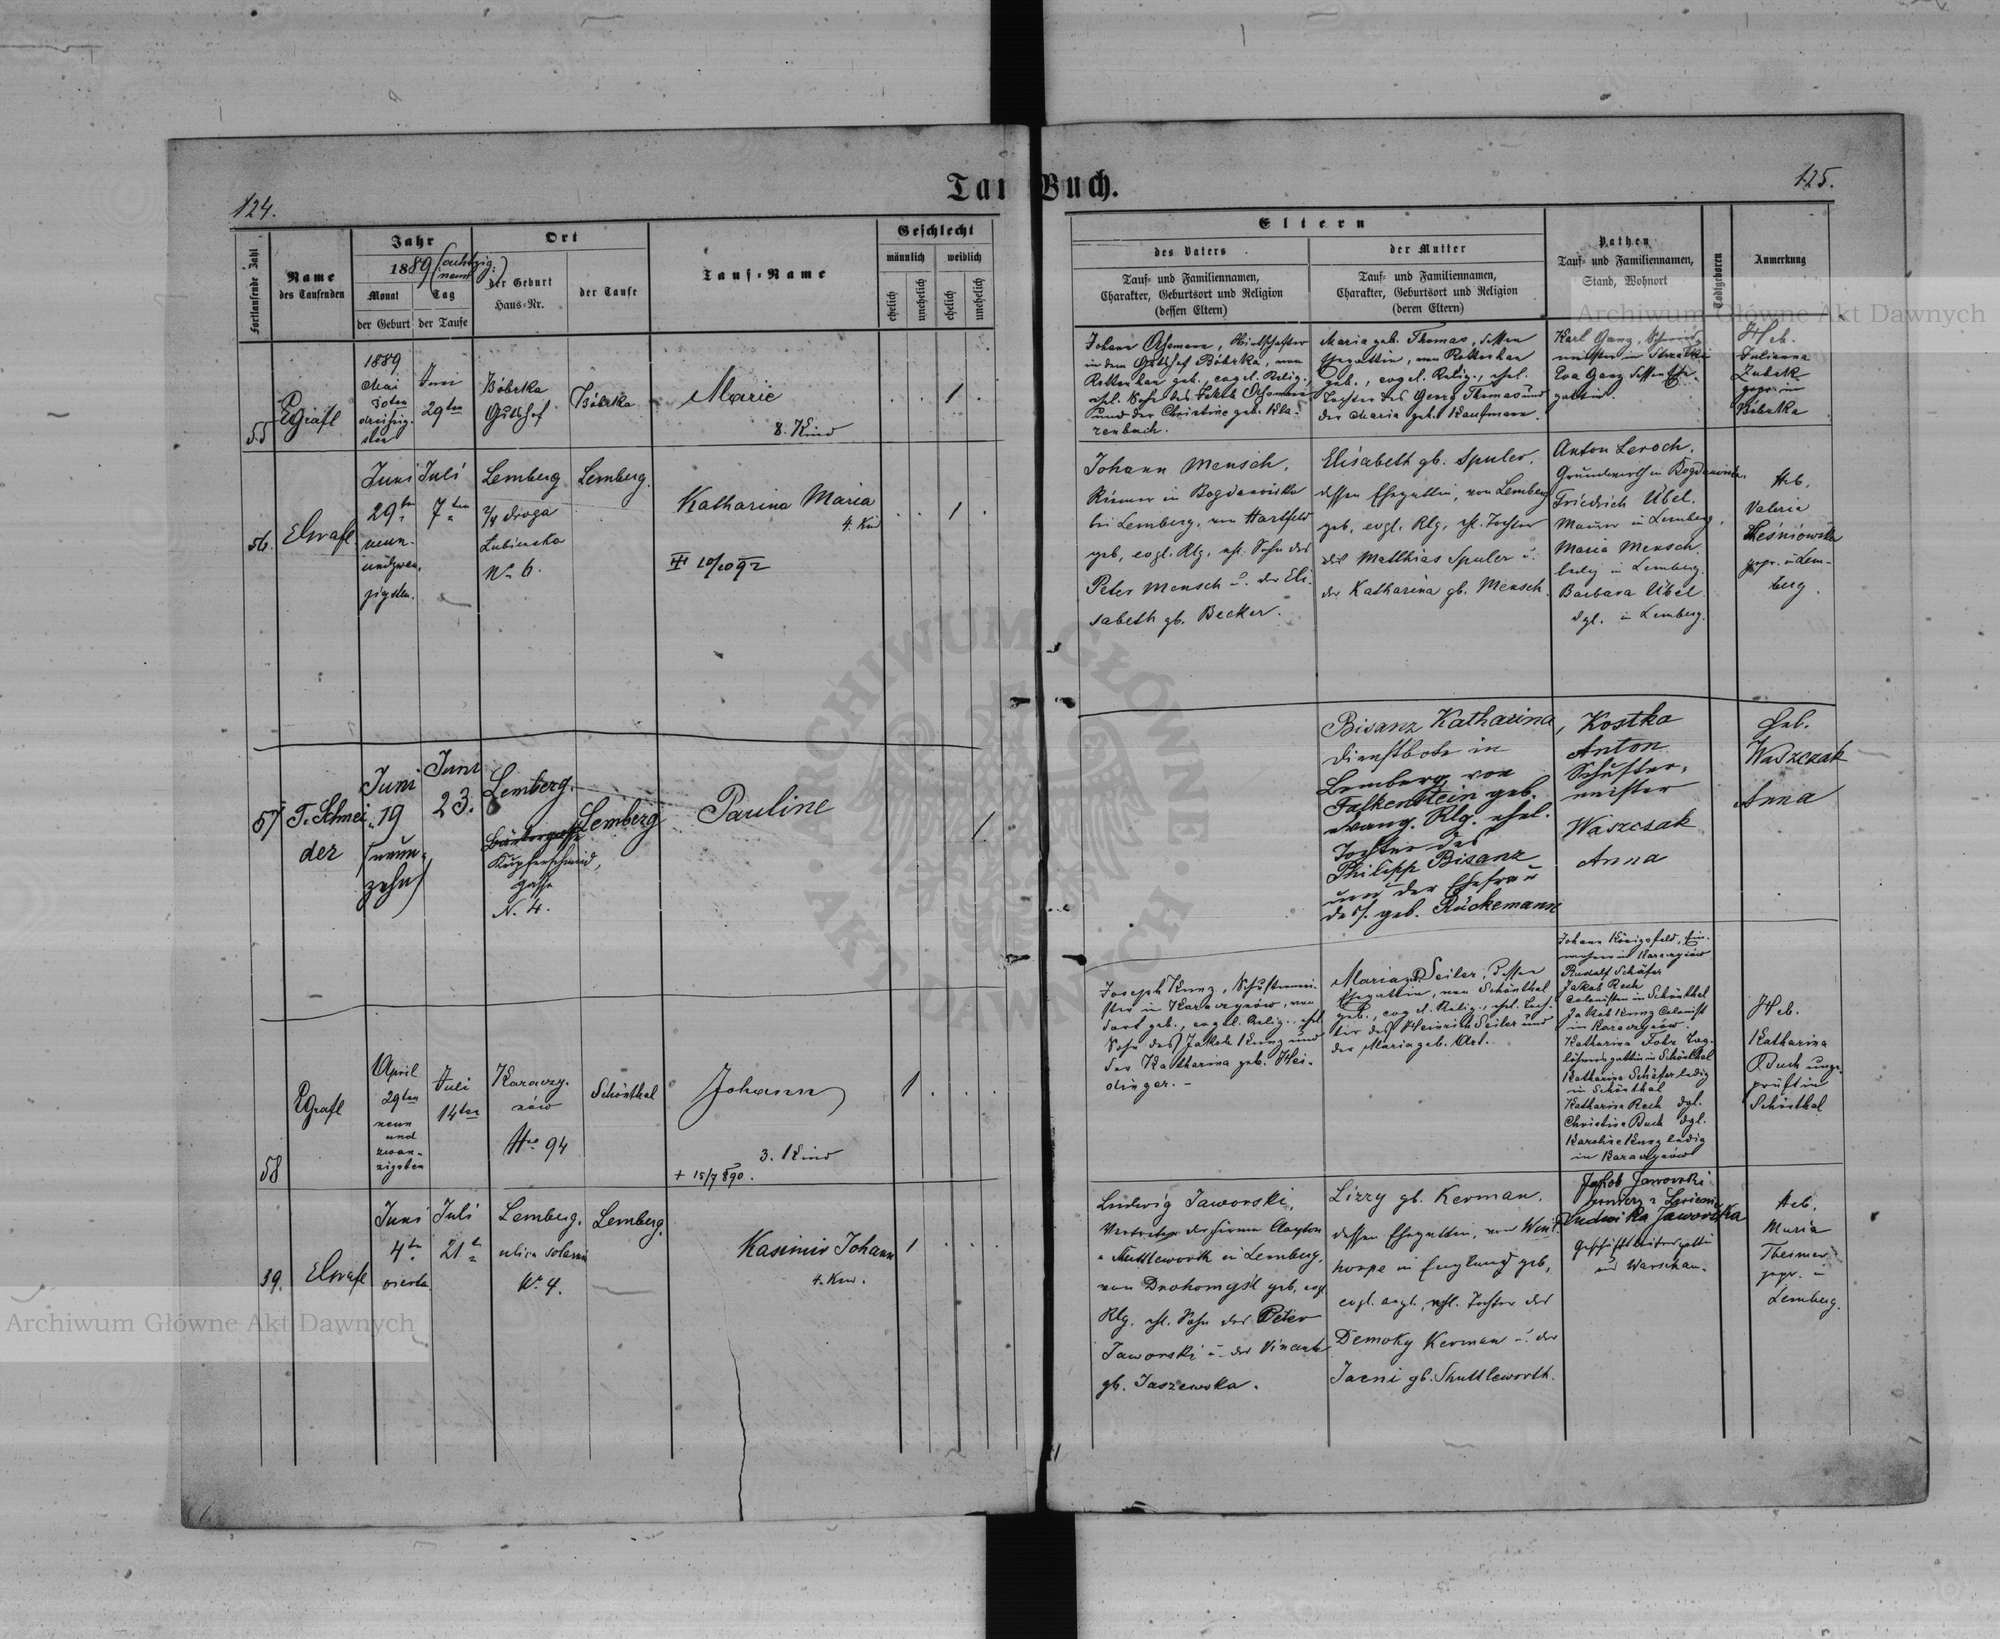 124.
125.
Tauf-Buch.
Fortlaufende Zahl
Name
des Taufenden
Jahr
1889 (achtzig
neun)
Monat
Tag
der Geburt
der Taufe
Ort
der Geburt
Haus-Nr.
der Taufe
Tauf-Name
Geschlecht
männlich
weiblich
ehelich
unehelich
ehelich
unehelich
Eltern
des Vaters
Tauf- und Familiennamen,
Charakter, Geburtsort und Religion
(dessen Eltern)
der Mutter
Tauf- und Familiennamen,
Charakter, Geburtsort und Religion
(deren Eltern)
Pathen
Tauf- und Familiennamen,
Stand, Wohnort
Todtgeboren
Anmerkung
55
EGräfl
1889
Mai
30ten
dreißig-
sten
Juni
29ten
Bóbrka
Gutshof
Bóbrka
Marie
8. Kind
1
Johann, Wirthschafter
in dem Gutshof Bóbrka, von
Rottenhan geb., evgel. Relig.,
ehl. Sohn des
und der Christine geb. Kla-
renbach.
Maria geb. Thomas, dessen
Ehegattin, von Rottenhan
geb., evgel. Relig., ehel.
Tochter des Georg Thomas und
der Maria geb. Kaufmann.
Karl Ganz, Schmied-
meister in
Eva Ganz dessen Ehe-
gattin.
Heb.
Julianna
Zubek
gepr. in
Bóbrka
56.
Juni
29ten
neun-
undzwan-
zigsten.
Juli
7ten
Lemberg
2/4 droga
Łubieńska
No 6.
Lemberg.
Katharina Maria
4. Kind
III 10/10 92
1
Johann Mensch,
Riemer in Bogdanówka
bei Lemberg, von Hartfeld
geb., evgl. Rlg., ehl. Sohn des
Peter Mensch u. der Eli-
sabeth gb. Becker.
Elisabeth gb. Spuler,
dessen Ehegattin, von Lemberg
geb., evgl. Rlg., ehl. Tochter
des Matthias Spuler u.
der Katharina gb. Mensch.
Anton Leroch,
Grundwirth in Bogdanówka.
Friedrich Übel.
Maurer in Lemberg,
Maria Mensch.
ledig in Lemberg.
Barbara Übel
dgl. in Lemberg.
Heb.
Valeria
Leśniowska
gepr. in Lem-
berg.
57
T. Schnei-
der
Juni
19
(neun-
zehn)
Juni
23.
Lemberg.
Kupferschmied,
gasse
N. 4.
Lemberg
Pauline
1
Bisanz Katharina,
Dienstbote in
Lemberg, von
Falkenstein geb.
evang. Rlg. ehel.
Tochter des
Philipp Bisanz
und der Ehefrau
dess. geb. Rückemann
Kostka
Anton
Schuster-
meister
Waszczak
Anna
Heb.
Waszczak
Anna
58
EGräfl
April
29ten
neun
und
zwan-
zigsten
Juli
14ten
Karaczy-
nów
Nro 94
Schönthal
Johann
3. Kind
+ 15/7 890.
1
Joseph Kunz, Schustermei-
ster in Karaczynów, von
dort geb., evgel. Relig., ehel.
Sohn des Jakob Kunz und
der Katharina geb. Hei-
dinger. -
Maria gb. Seiler, dessen
Ehegattin, von Schönthal
geb., evgel. Relig., ehel. Toch-
ter des Heinrich Seiler und
der Maria geb. Art.
Johann Königsfeld, Ein-
wohner in Karaczynów
Rudolf Schäfer
Jakob Rech
Colonisten in Schönthal
Jakob Kunz Colonist
in Karaczynów.
Katharina Fohr Tag-
löhnersgattin in Schönthal
Katharina Schäfer ledig
in Schönthal
Katharina Rech dgl.
Christine Buch dgl.
Karoline Kunz ledig
in Karaczynów
Heb.
Katharina
Buch unge-
prüft in
Schönthal
59.
Juni
4te
vierten
Juli
21te
Lemberg.
ulica solarni
No. 4.
Lemberg.
Kasimir Johann
4. Kind.
1
Ludwig Jaworski,
Vertreter der Firma Clayton
& Shuttleworth in Lemberg,
von Drohomyśl geb., evgl.
Rlg. ehl. Sohn des Peter
Jaworski u. der Vincent
gb. Jaszewska.
Lizzy gb. Kerman,
dessen Ehegattin,
in England geb.,
evgl. angl., ehl. Tochter des
Demoky Kerman u. der
Jaeni gb. Shuttleworth.
Jakob Jaworski
Ludwika Jaworska
Geschäftsleitersgattin
in Warschau.
Heb.
Maria
gepr. in
Lemberg.
Archiwum Główne Akt Dawnych
Archiwum Główne Akt Dawnych
ARCHIWUM GŁÓWNE
AKT DAWNYCH